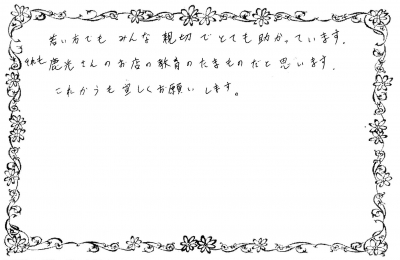 若い方でも みんな 親切で とても助かっています.
鹿光さんのお店の教育のたまものだと思います.
これからも宜しくお願いします。